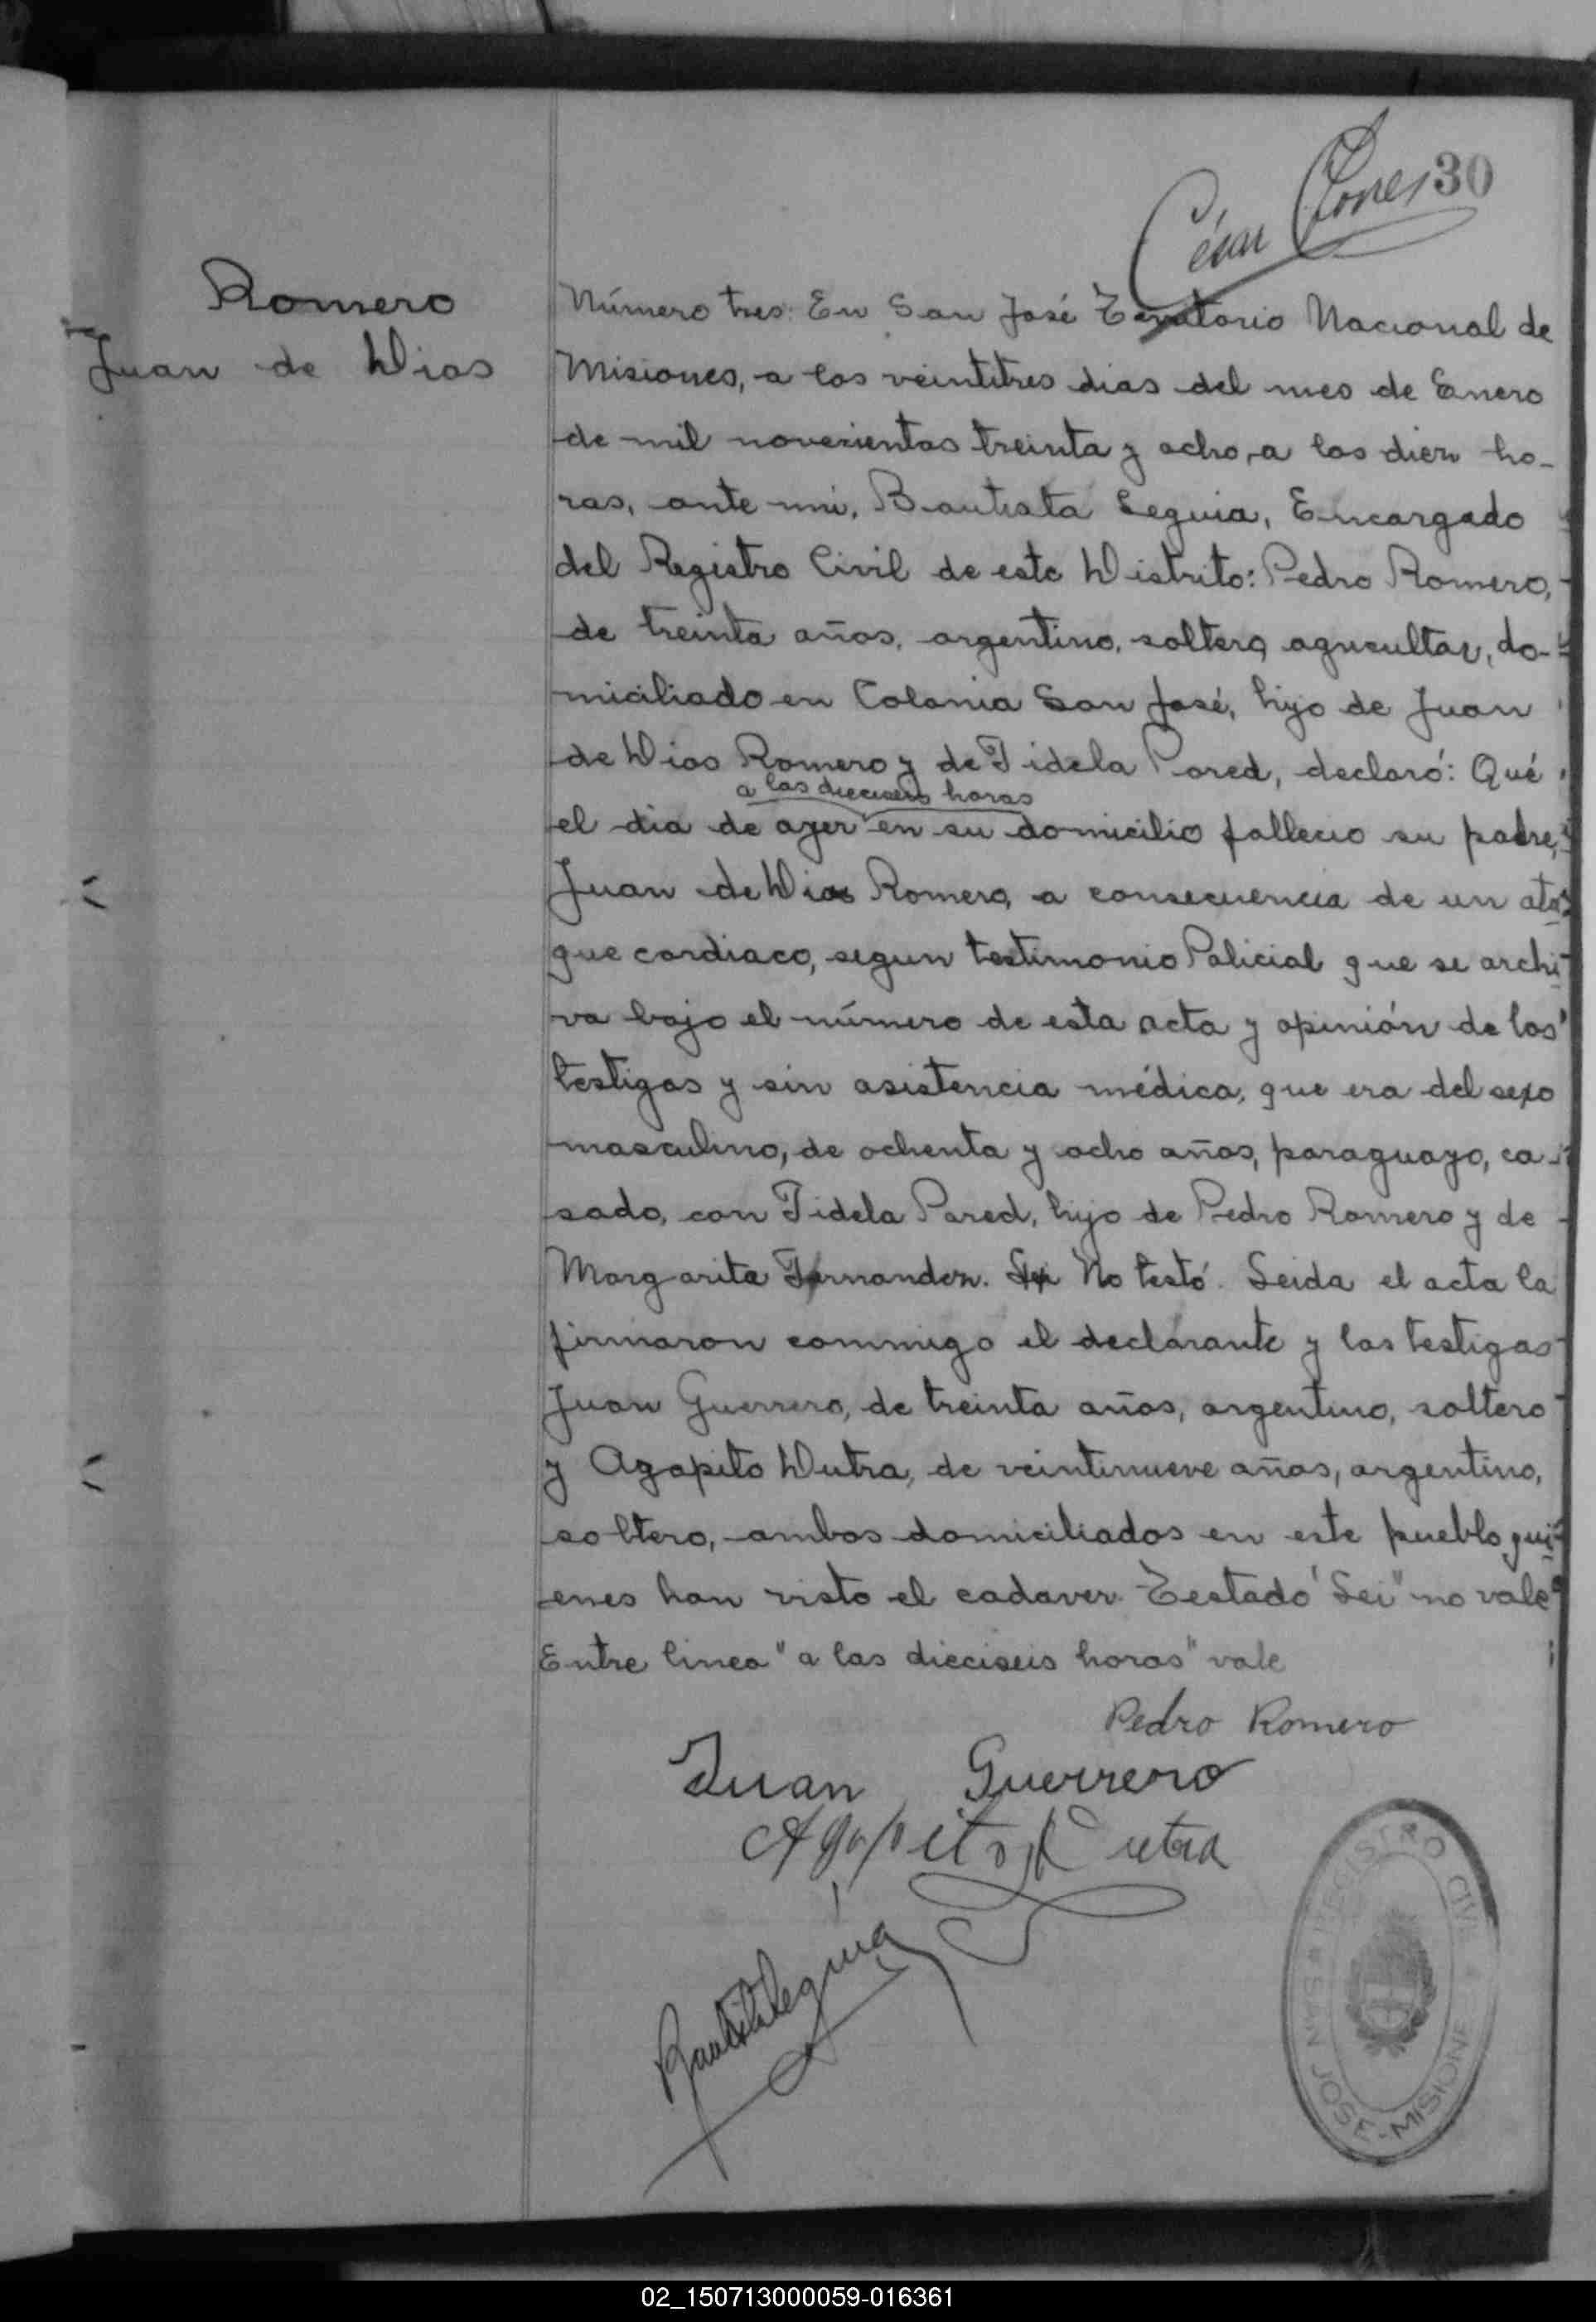 César Jones 30
Romero
Juan de Dios
Número tres: En San José Territorio Nacional de
Misiones, a los veintitres dias del mes de Enero
de mil novecientos treinta y ocho, a las diez ho-
ras, ante mi, Bautista Seguia, Encargado
del Registro Civil de este Distrito: Pedro Romero,
de treinta años, argentino, soltero, agricultor, do-
miciliado en Colonia San José, hijo de Juan
de Dios Romero y de Fidela Pared, declaró: Qué
a las dieciseis horas
el dia de ayer en su domicilio fallecio su padre,
Juan de Dios Romero, a consecuencia de un ata-
que cardiaco, segun testimonio Policial que se archi-
va bajo el número de esta acta y opinión de los
testigos y sin asistencia médica, que era del sexo
masculino, de ochenta y ocho años, paraguayo, ca-
sado, con Fidela Pared, hijo de Pedro Romero y de
Margarita Fernandez. Lei No testó. Leida el acta la
firmaron conmigo el declarante y los testigos
Juan Guerrero, de treinta años, argentino, soltero
y Agapito Dutra, de veintinueve años, argentino,
soltero, ambos domiciliados en este pueblo qui-
enes han visto el cadaver. Testado "Lei" no vale
Entre linea "a las dieciseis horas" vale
Pedro Romero
Juan Guerrero
Agapito Dutra
Bautista Seguia
REGISTRO CIVIL
SAN JOSE - MISIONES
02_150713000059-016361